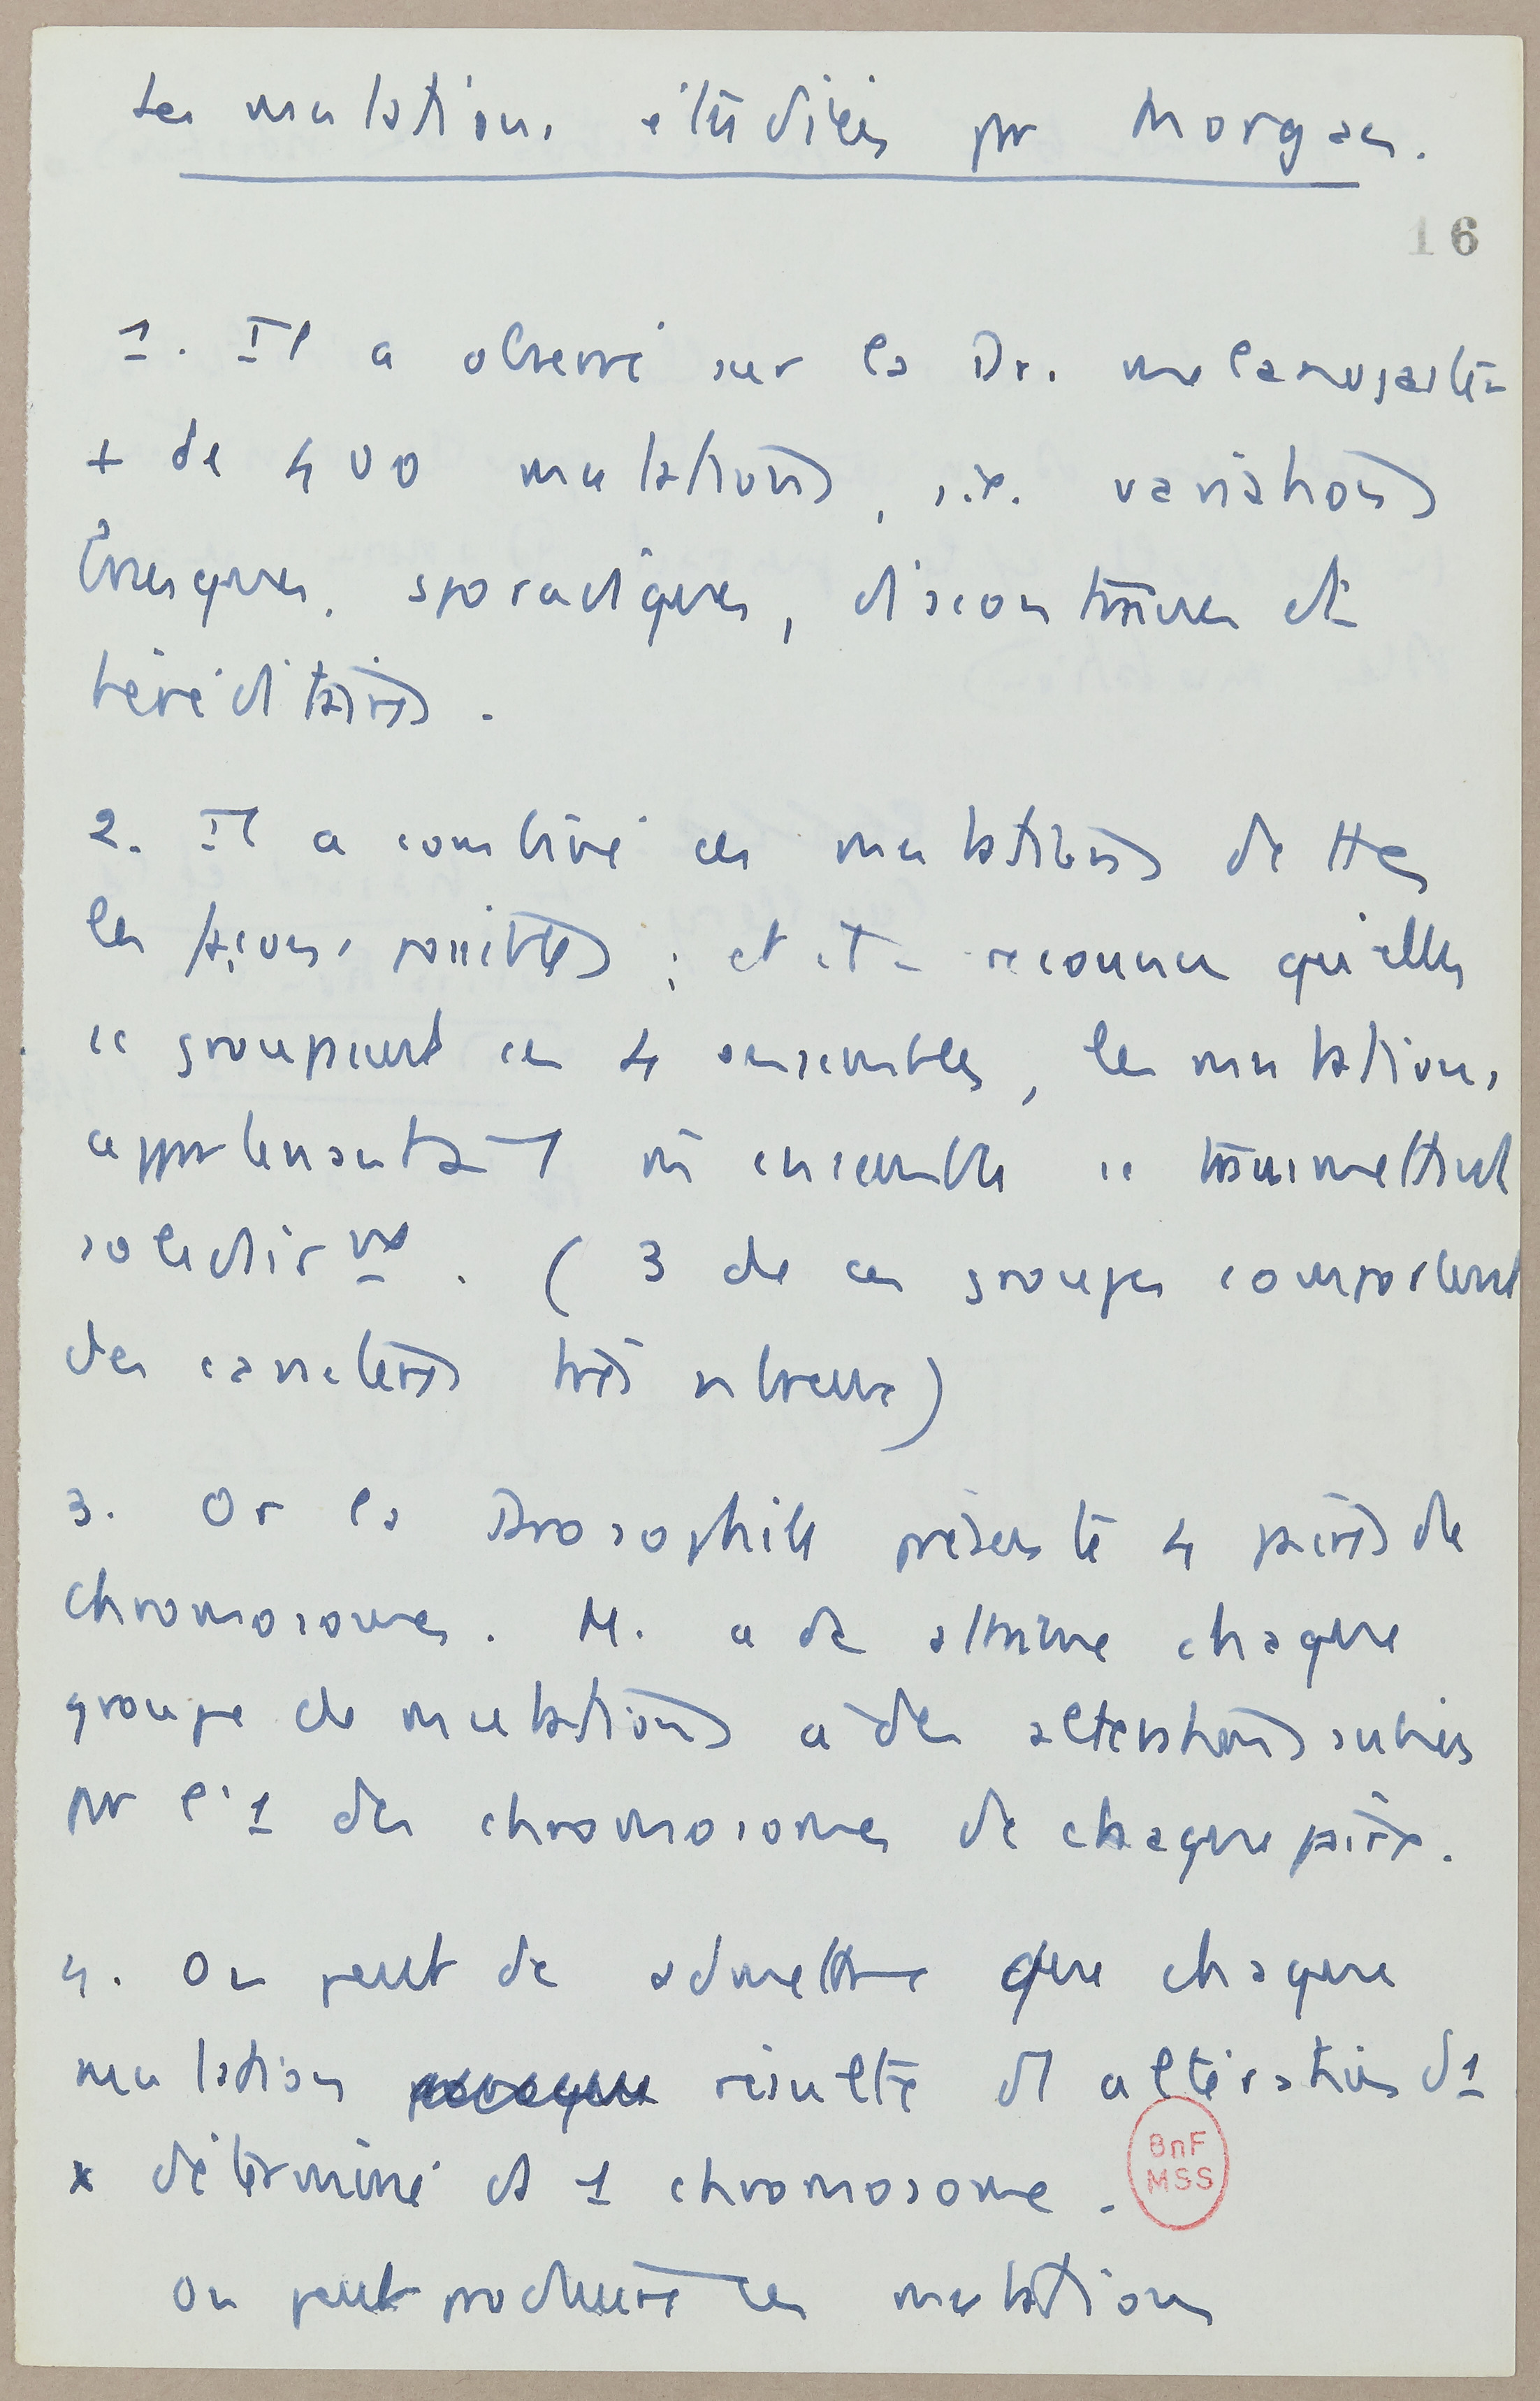 Les mutations étudiées pr Morgan.
16
1. Il a observé sur la Dr. melanogaster
+ de 400 mutations, i.e. variations
brusques, sporadiques, discontinues et
héréditaires.
2. Il a combiné ces mutations de ttes
les façons possibles ; et reconnu qu'elles
se groupaient en 4 ensembles, les mutations
appartenant à 1 m̂ ensemble se transmettant
solidairᵐᵗ. (3 de ces groupes comportent
des caractères très nbreux)
3. Or la Drosophile présente 4 paires de
chromosomes. M. a dc attribué chaque
groupe de mutations à des altérations subies
pr l'1 des chromosomes de chaque paire.
4. On peut dc admettre que chaque
mutation résulte d'1 altération d'1
x déterminé d'1 chromosome.
On peut produire ces mutations
BnF
MSS